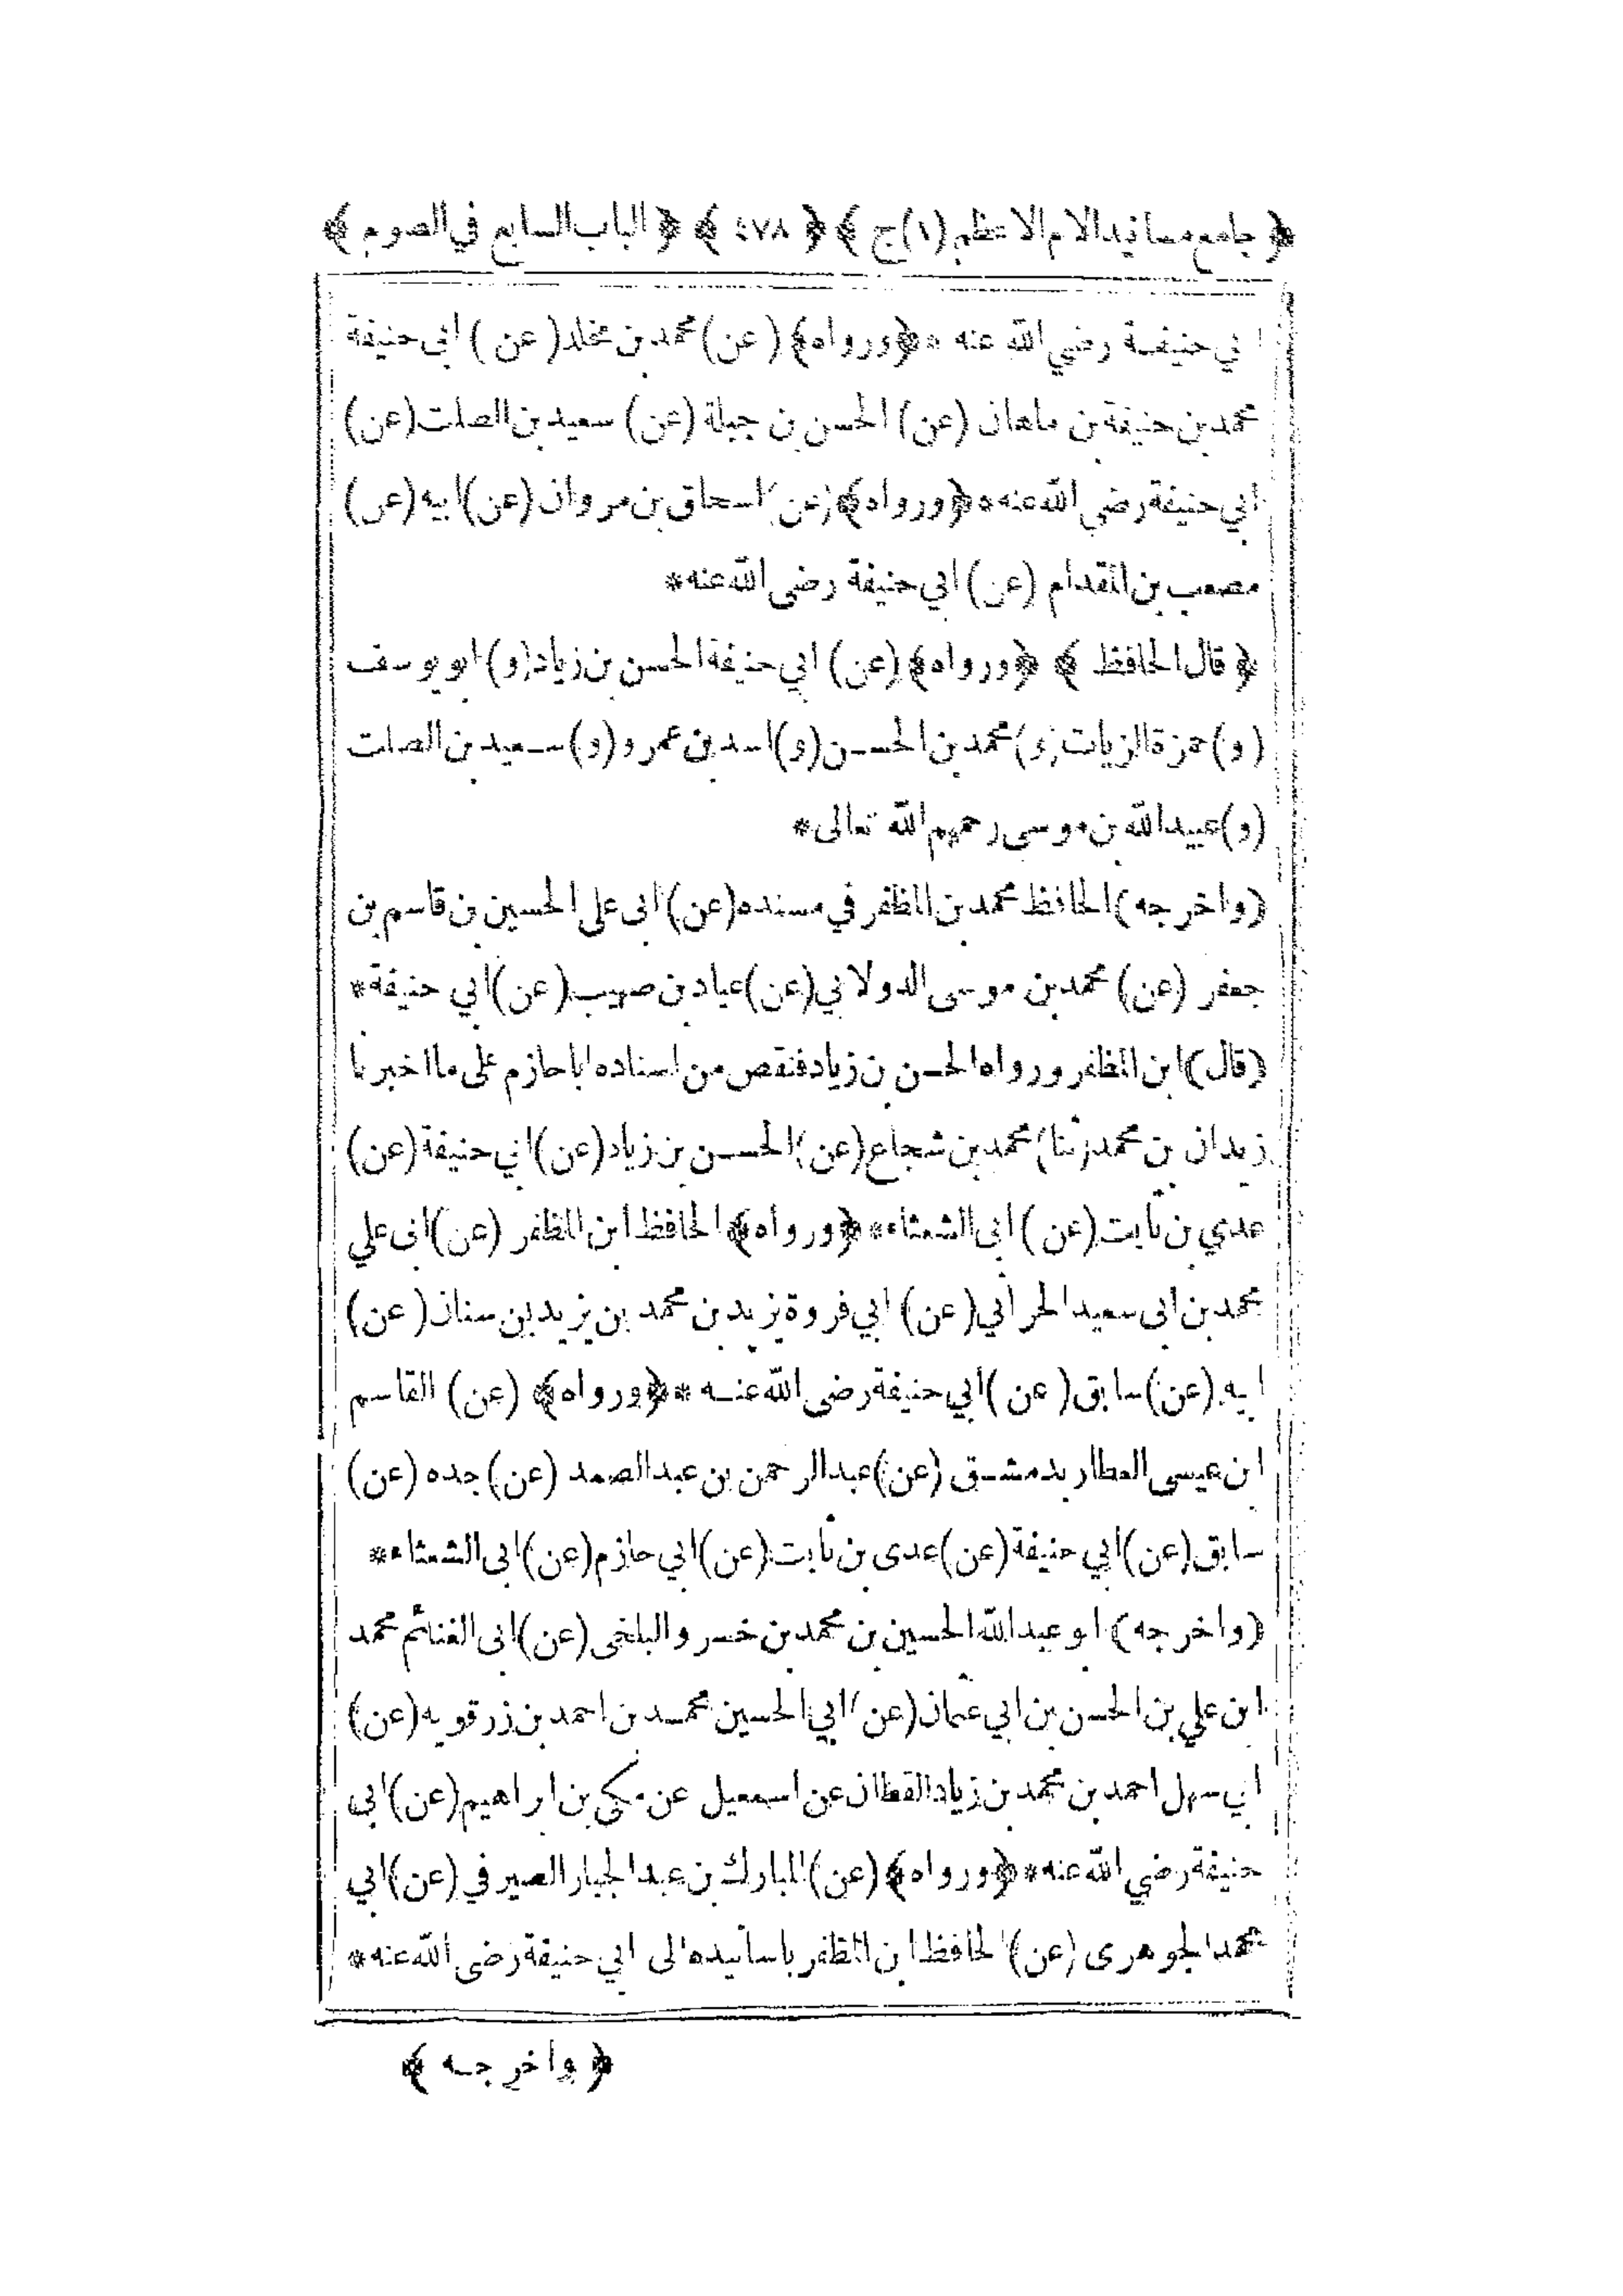 ﴿ جامع مسانيد الامام الاعظم (١) ج ﴾ ﴿ ٤٧٨ ﴾ ﴿ الباب السابع في الصوم ﴾
ابي حنيفة رضي الله عنه * ﴿ورواه﴾ (عن) محمد بن مخلد (عن) ابى حنيفة
محمد بن حنيفة بن ماهان (عن) الحسن بن جبلة (عن) سعيد بن الصلت (عن)
ابي حنيفة رضى الله عنه * ﴿ورواه﴾ (عن) اسحاق بن مروان (عن) ابيه (عن)
مصعب بن المقدام (عن) ابي حنيفة رضى الله عنه *
﴿ قال الحافظ ﴾ ﴿ورواه﴾ (عن) ابي حنيفة الحسن بن زياد (و) ابو يوسف
(و) حمزة الزيات (و) محمد بن الحسن (و) اسد بن عمرو (و) سعيد بن الصلت
(و) عبيد الله بن موسى رحمهم الله تعالى *
(واخرجه) الحافظ محمد بن المظفر في مسنده (عن) ابى على الحسين بن قاسم بن
جعفر (عن) محمد بن موسى الدولابي (عن) عباد بن صهيب (عن) ابي حنيفة *
(قال) ابن المظفر ورواه الحسن بن زياد فنقص من اسناده اباحازم على ما اخبرنا
زيدان بن محمد (ثنا) محمد بن شجاع (عن) الحسن بن زياد (عن) ابي حنيفة (عن)
عدي بن ثابت (عن) ابى الشعثاء * ﴿ورواه﴾ الحافظ ابن المظفر (عن) ابى علي
محمد بن ابى سعيد الحراني (عن) ابي فروة يزيد بن محمد بن يزيد بن سنان (عن)
ابيه (عن) سابق (عن) ابي حنيفة رضى الله عنه * ﴿ورواه﴾ (عن) القاسم
ابن عيسى العطار بدمشق (عن) عبد الرحمن بن عبد الصمد (عن) جده (عن)
سابق (عن) ابي حنيفة (عن) عدى بن ثابت (عن) ابي حازم (عن) ابى الشعثاء *
(واخرجه) ابو عبد الله الحسين بن محمد بن خسرو البلخى (عن) ابى الغنائم محمد
ابن علي بن الحسن بن ابي عثمان (عن) ابي الحسين محمد بن احمد بن زرقويه (عن)
ابي سهل احمد بن محمد بن زياد القطان عن اسمعيل عن مكى بن ابراهيم (عن) ابى
حنيفة رضي الله عنه * ﴿ورواه﴾ (عن) المبارك بن عبد الجبار الصيرفي (عن) ابي
محمد الجوهرى (عن) الحافظ ابن المظفر باسانيده الى ابي حنيفة رضى الله عنه *
﴿ واخرجه ﴾